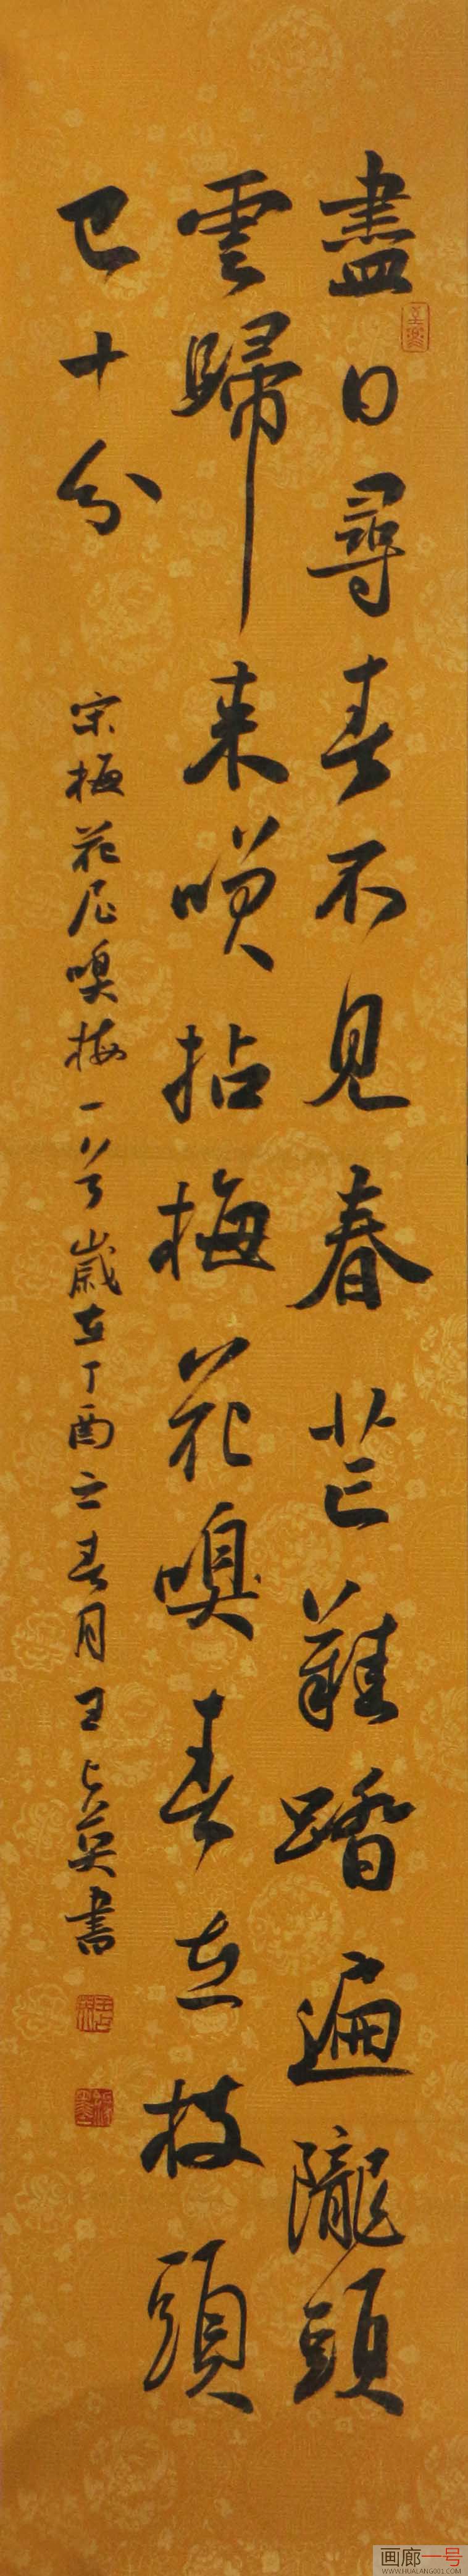 盡日尋春不見春芒鞵踏遍隴頭
雲歸来咲拈梅花嗅春在枝頭
已十分
宋梅花尼嗅梅一首歲在丁酉之春月王占英書
画廊一号
WWW.HUALANG001.COM